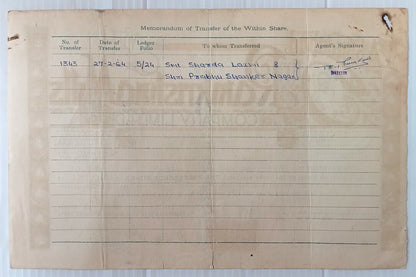 Memorandum of Transfer of the Within Share.
No. of Transfer
Date of Transfer
Ledger Folio
To whom Transferred
Agent's Signature
1343 27-2-64 5/24 Smt Sharda Laxmi &
Shri Prabhu Shanker Nagar